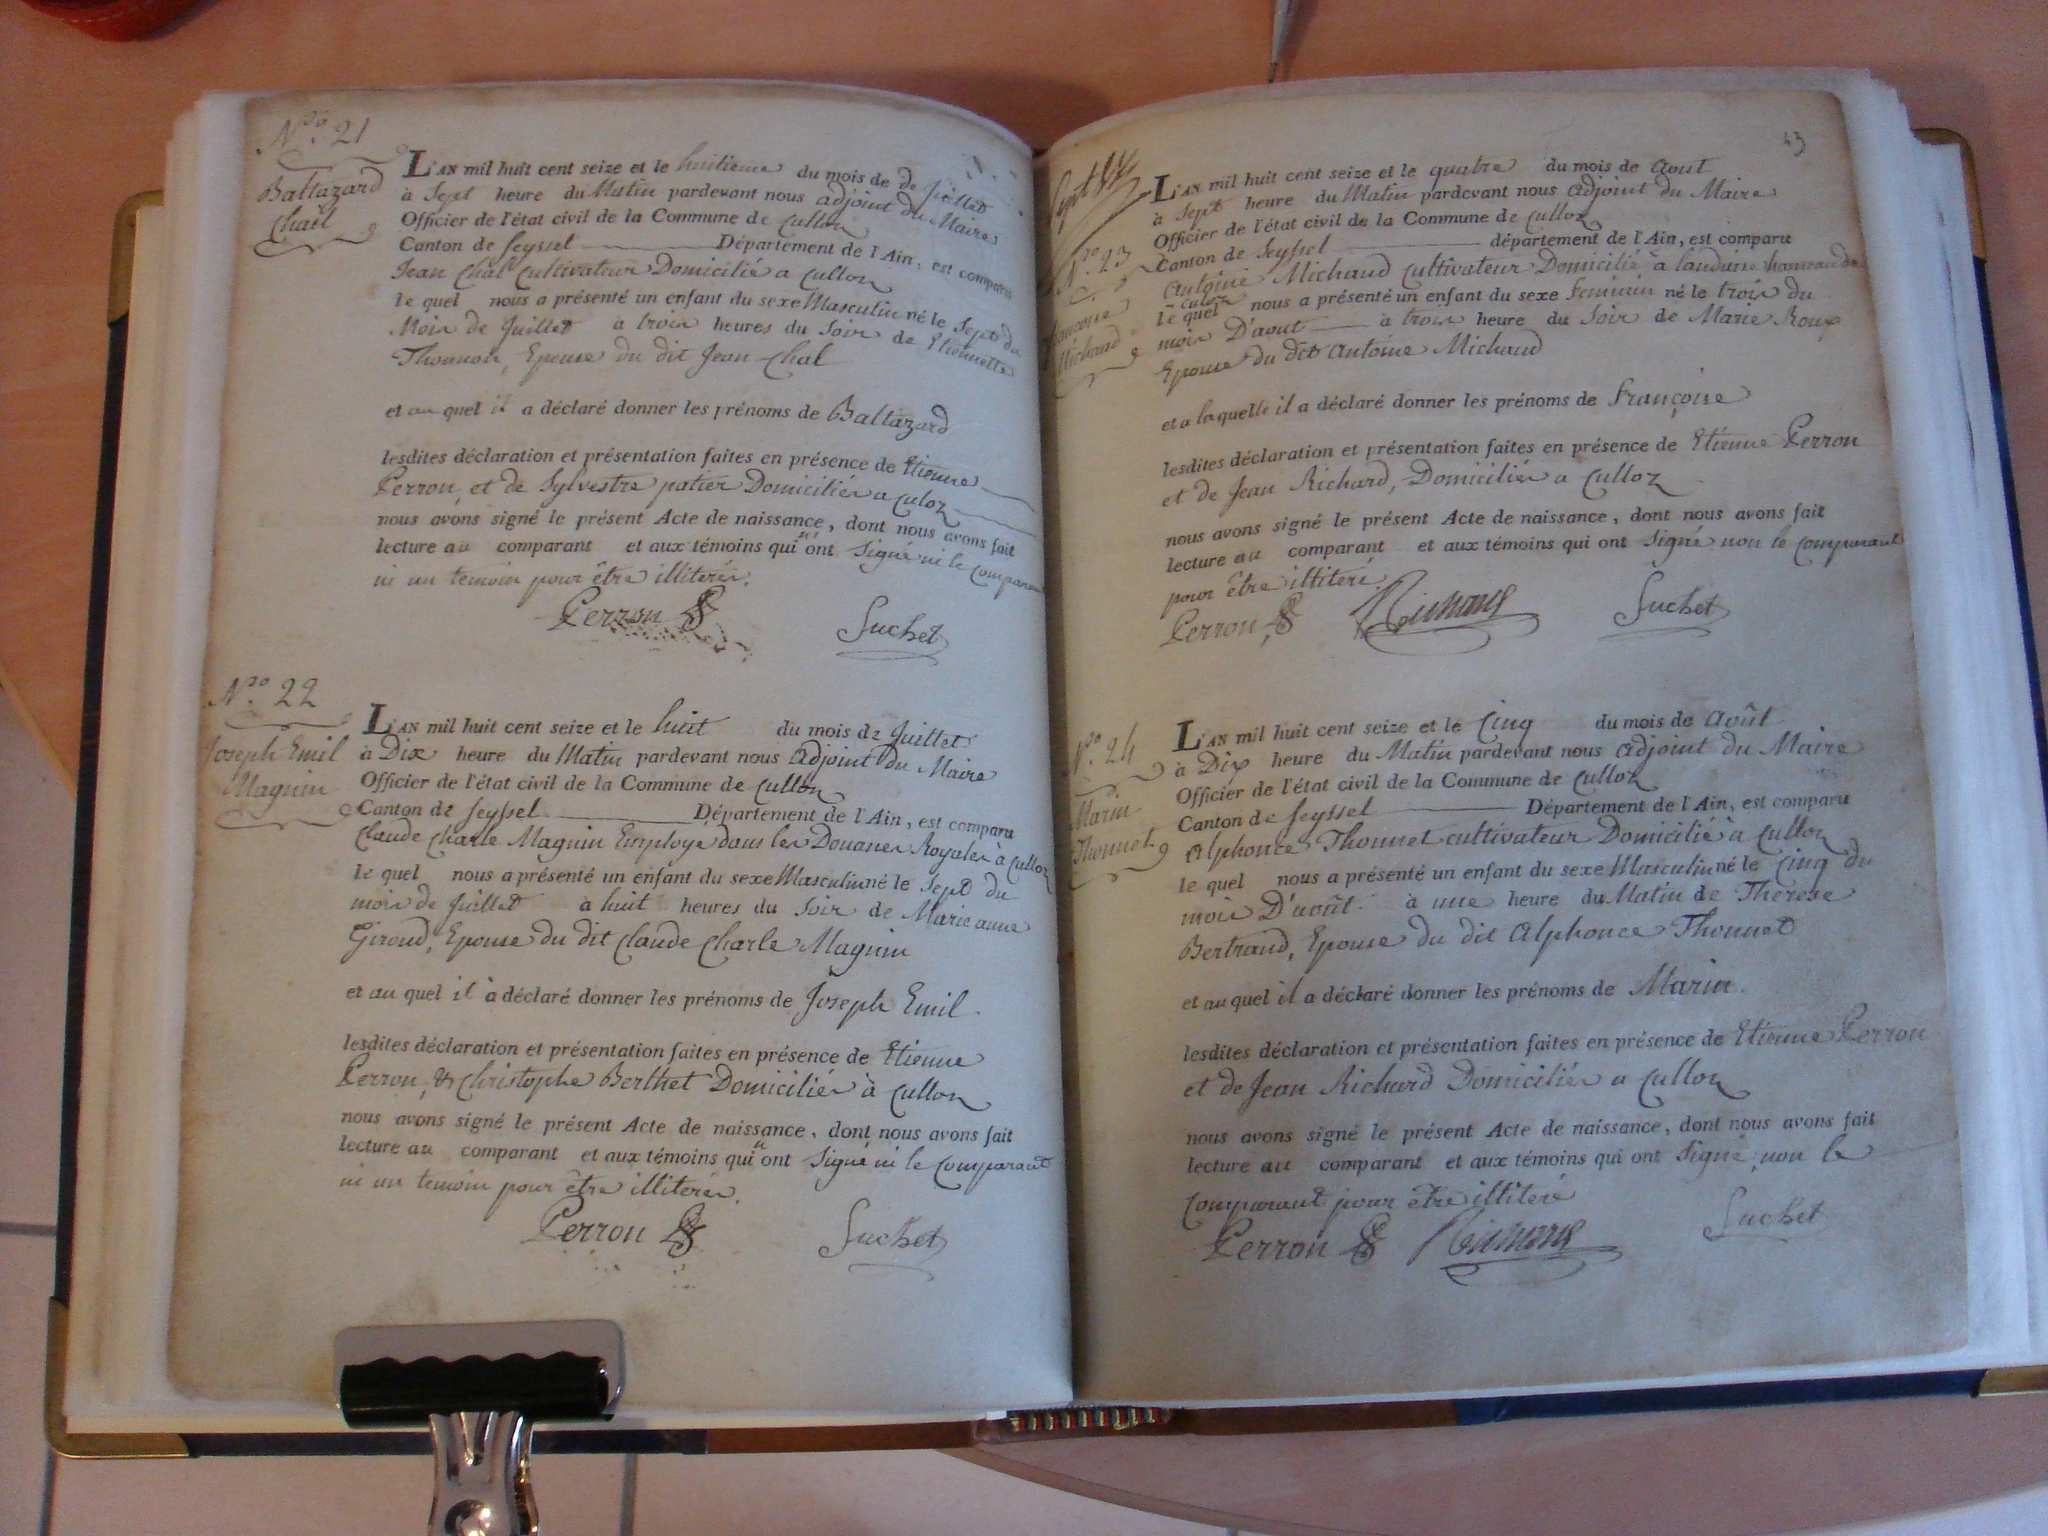 N.ro 21
Baltazard
Chail
L'AN mil huit cent seize et le huitieme du mois de de Juillet
à Sept heure du Matin pardevant nous adjoint du Maire
Officier de l'état civil de la Commune de Culloz
Canton de Seyssel Département de l'Ain, est comparu
Jean Chal Cultivateur Domicilié a Culloz
le quel nous a présenté un enfant du sexe Masculin né le Sept du
Mois de Juillet à trois heures du Soir de Etiennette
Thonnon, Epouse du dit Jean Chal
et au quel il a déclaré donner les prénoms de Baltazard
lesdites déclaration et présentation faites en présence de Etienne
Perron, et de Sylvestre patier Domiciliés a Culoz
nous avons signé le présent Acte de naissance, dont nous avons fait
lecture au comparant et aux témoins qui n'ont Signé ni le Comparant
ni un temoin pour être illiterés.
Perron Suchet
N.ro 22
Joseph Emil
Magnin
L'AN mil huit cent seize et le huit du mois de Juillet
à Dix heure du Matin pardevant nous Adjoint du Maire
Officier de l'état civil de la Commune de Culloz
Canton de Seyssel Département de l'Ain, est comparu
Claude Charle Magnin Employé dans les Douanes Royales à Culloz
le quel nous a présenté un enfant du sexe Masculin né le Sept du
mois de Juillet à huit heures du Soir de Marie anne
Giroud, Epouse du dit Claude Charle Magnin
et au quel il à déclaré donner les prénoms de Joseph Emil
lesdites déclaration et présentation faites en présence de Etienne
Perron, & Christophe Berthet Domiciliés à Culloz
nous avons signé le présent Acte de naissance, dont nous avons fait
lecture au comparant et aux témoins qui n'ont Signé ni le Comparant
ni un temoin pour être illiterés.
Perron Suchet
43
N.ro 23
Francoise
Michaud
L'AN mil huit cent seize et le quatre du mois de Aout
à Sept heure du Matin pardevant nous adjoint du Maire
Officier de l'état civil de la Commune de Culloz
Canton de Seyssel département de l'Ain, est comparu
Antoine Michaud Cultivateur Domicilié à landaise hameau de
Culoz
le quel nous a présenté un enfant du sexe feminin né le trois du
mois D'aout à trois heure du Soir de Marie Roux
Epouse du dit Antoine Michaud
et a laquelle il a déclaré donner les prénoms de Françoise
lesdites déclaration et présentation faites en présence de Etienne Perron
et de Jean Richard, Domiciliés a Culloz
nous avons signé le présent Acte de naissance, dont nous avons fait
lecture au comparant et aux témoins qui ont Signé non le Comparant
pour être illiteré.
Perron Richard Suchet
N.ro 24
Marin
Thonnet
L'AN mil huit cent seize et le Cinq du mois de Août
à Dix heure du Matin pardevant nous adjoint du Maire
Officier de l'état civil de la Commune de Culloz
Canton de Seyssel Département de l'Ain, est comparu
Alphonce Thonnet cultivateur Domicilié à Culloz
le quel nous a présenté un enfant du sexe Masculin né le Cinq du
mois D'août à une heure du Matin de Therese
Bertrand, Epouse du dit Alphonce Thonnet
et au quel il a déclaré donner les prénoms de Marin.
lesdites déclaration et présentation faites en présence de Etienne Perron
et de Jean Richard Domiciliés a Culloz
nous avons signé le présent Acte de naissance, dont nous avons fait
lecture au comparant et aux témoins qui ont Signé, non le
Comparant pour être illiteré
Perron Richard Suchet